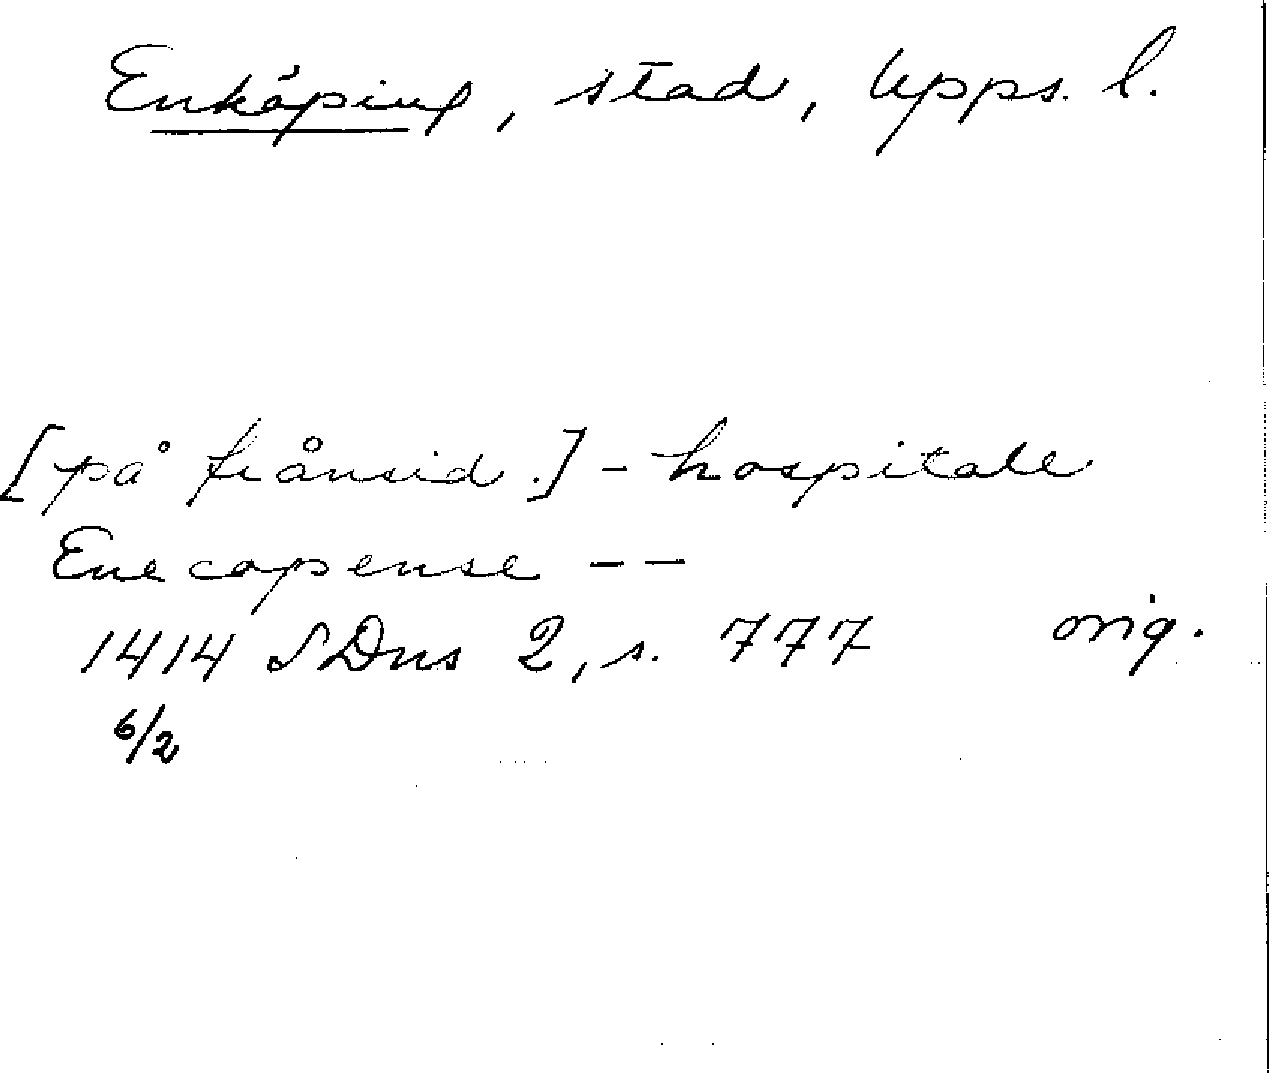 Enköping, stad, Upps. l.
[på frånsid.] - hospitale
Enecopense - -
1414 SDns 2, s. 777 orig.
6/2